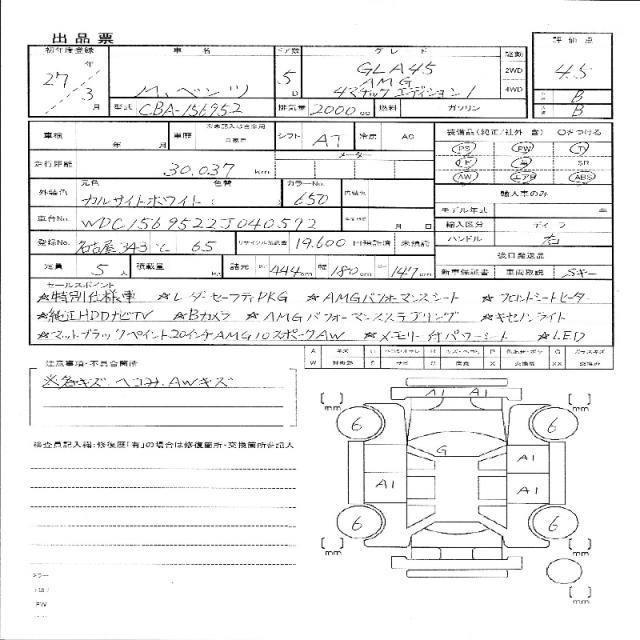 出品票
初年度登録 車名 ドア数 グレード 駆動 評価点
27年 3月 M.ベンツ 5D GLA45 AMG 4マチック エディション1 2WD 4WD 4.5
B
B
型式 CBA-156952 排気量 2000cc 燃料 ガソリン
車検 年 月 車歴 シフト AT 冷房 AC 装備品(純正/社外 含) ○をつける
PS PW TV
走行距離 30,037km メーター SR
AW エアB ABS
外装色 元色 カルサイトホワイト 色替 カラーNo. 650 輸入車のみ
モデル年式 年
車台No. WDC1569522J040572 月 日 輸入区分 ディーラ
登録No. 名古屋343 65 リサイクル預託金 19,600円 預託済 未預託 ハンドル 右
後日発送品
定員 5人 積載量 諸元 長 444cm 幅 180cm 高 147cm 新車保証書 車両取説 Sキー
セールスポイント
☆特別仕様車 ☆レーダーセーフティPKG ☆AMGパフォーマンスシート ☆フロントシートヒーター
☆純正HDDナビTV ☆Bカメラ ☆AMGパフォーマンスステアリング ☆キセノンライト
☆マットブラックペイント20インチAMG10スポークAW ☆メモリー付パワーシート ☆LED
注意事項・不具合箇所
※各キズ、ヘコみ、AWキズ
検査員記入欄:修復歴「有」の場合は修復箇所・交換箇所を記入
mm mm
A1 A1
6 6
G A1
A1 A1
6 6
mm mm
mm